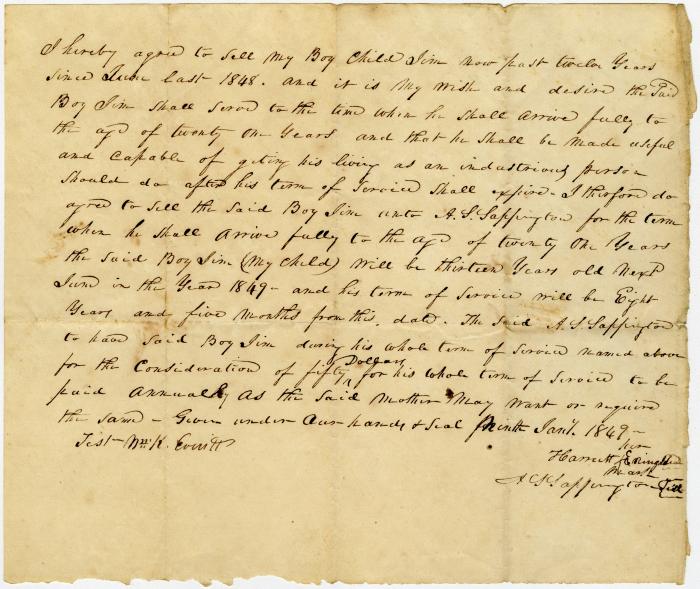 I hereby agree to Sell My Boy Child Jim now past twelve Years
Since June last 1848. and it is My wish and desire the Said
Boy Jim Shall Serve to the time when he Shall Arrive fully to
the age of twenty One Years and that he Shall be Made useful
and Capable of geting his living as an industrious person
Should do after his term of Service Shall expire - I therefore do
agree to Sell the Said Boy Jim unto A. S. Sappington for the term
when he Shall Arrive fully to the age of twenty One Years
the Said Boy Jim (My Child) Will be thirteen Years old Next
June in the Year 1849 - and his term of Service will be Eight
Years and five Months from this date. The Said A S Sappington
to have Said Boy Jim during his whole term of Service named above
for the Consideration of fifty Dollars for his whole term of Service to be
paid Annually As the Said Mother May Want or require
the Same - Given under Our hands & Seal Ninth Jany. 1849 -
Test Wm. K. Everitt
her
Harriett
Mark
A S Sappington Seal